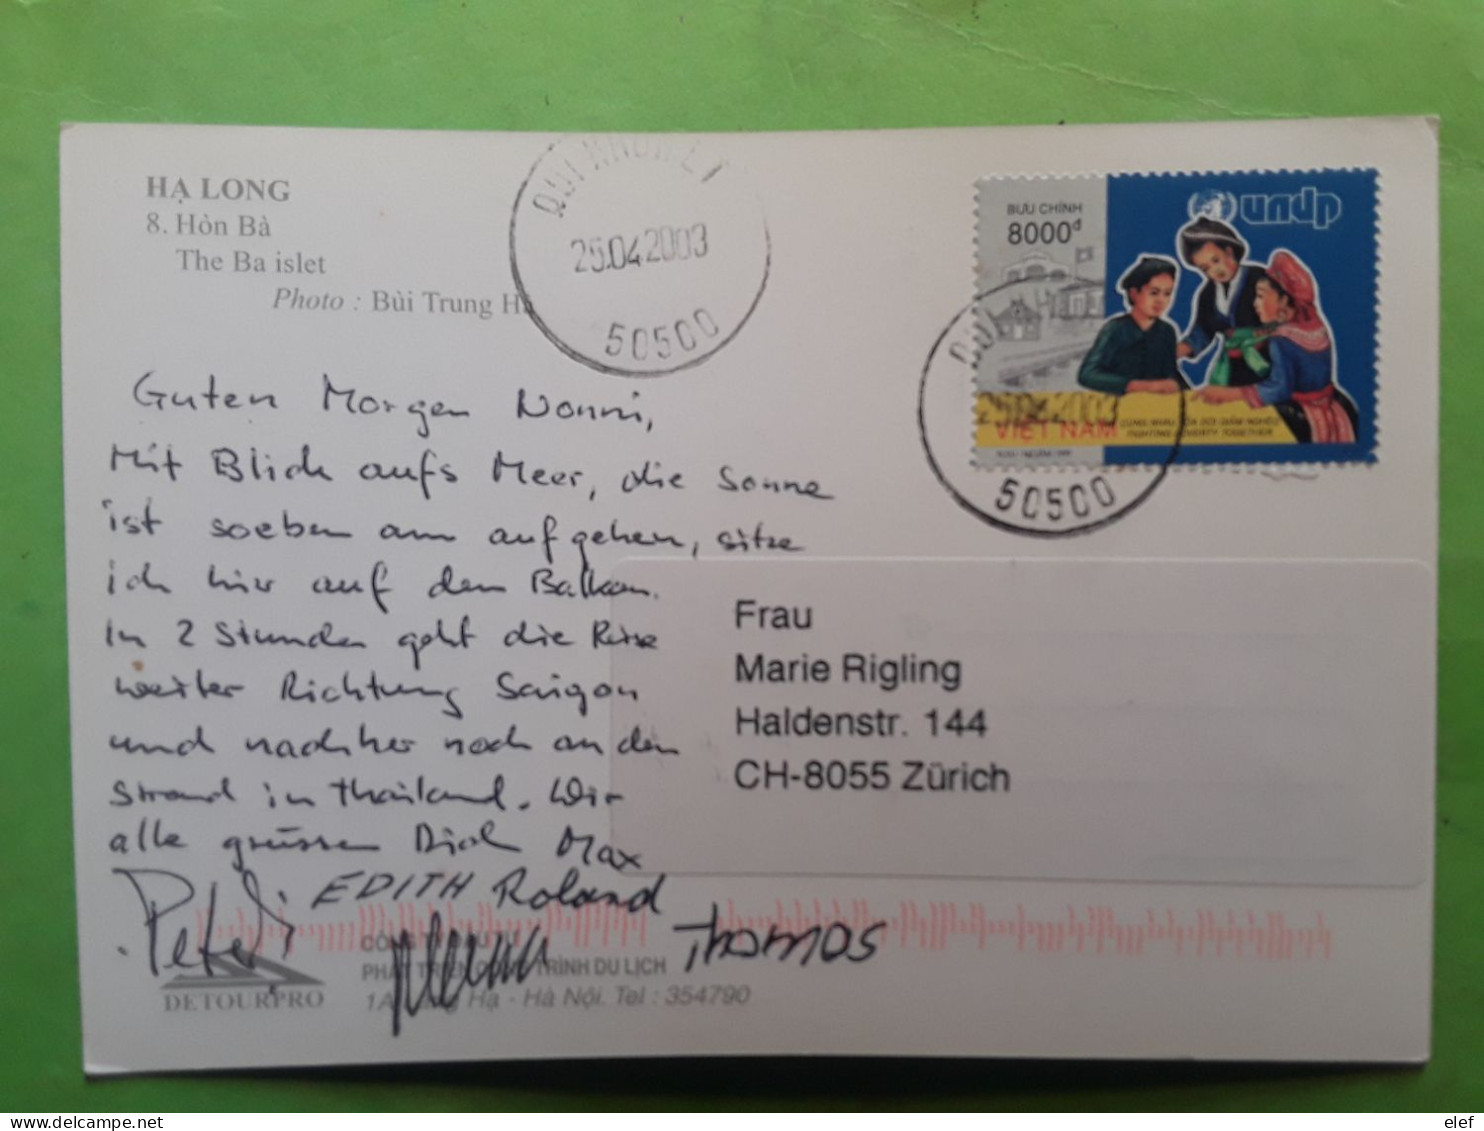 HẠ LONG
8. Hòn Bà
The Ba islet
Photo : Bùi Trung Hà
25.04.2003
50500
BƯU CHÍNH
8000đ
undp
VIỆT NAM
50500
Guten Morgen Nonni,
Mit Blick aufs Meer, die Sonne
ist soeben am aufgehen, sitze
ich hier auf dem Balkon.
In 2 Stunden geht die Reise
weiter Richtung Saigon
und nachher noch an den
Strand in Thailand. Wir
alle grüssen Dich Max
Peter EDITH Roland
Thomas
Frau
Marie Rigling
Haldenstr. 144
CH-8055 Zürich
PHÁT TRIỂN TRÌNH DU LỊCH
DETOURPRO
Hạ - Hà Nội. Tel : 354790
elef